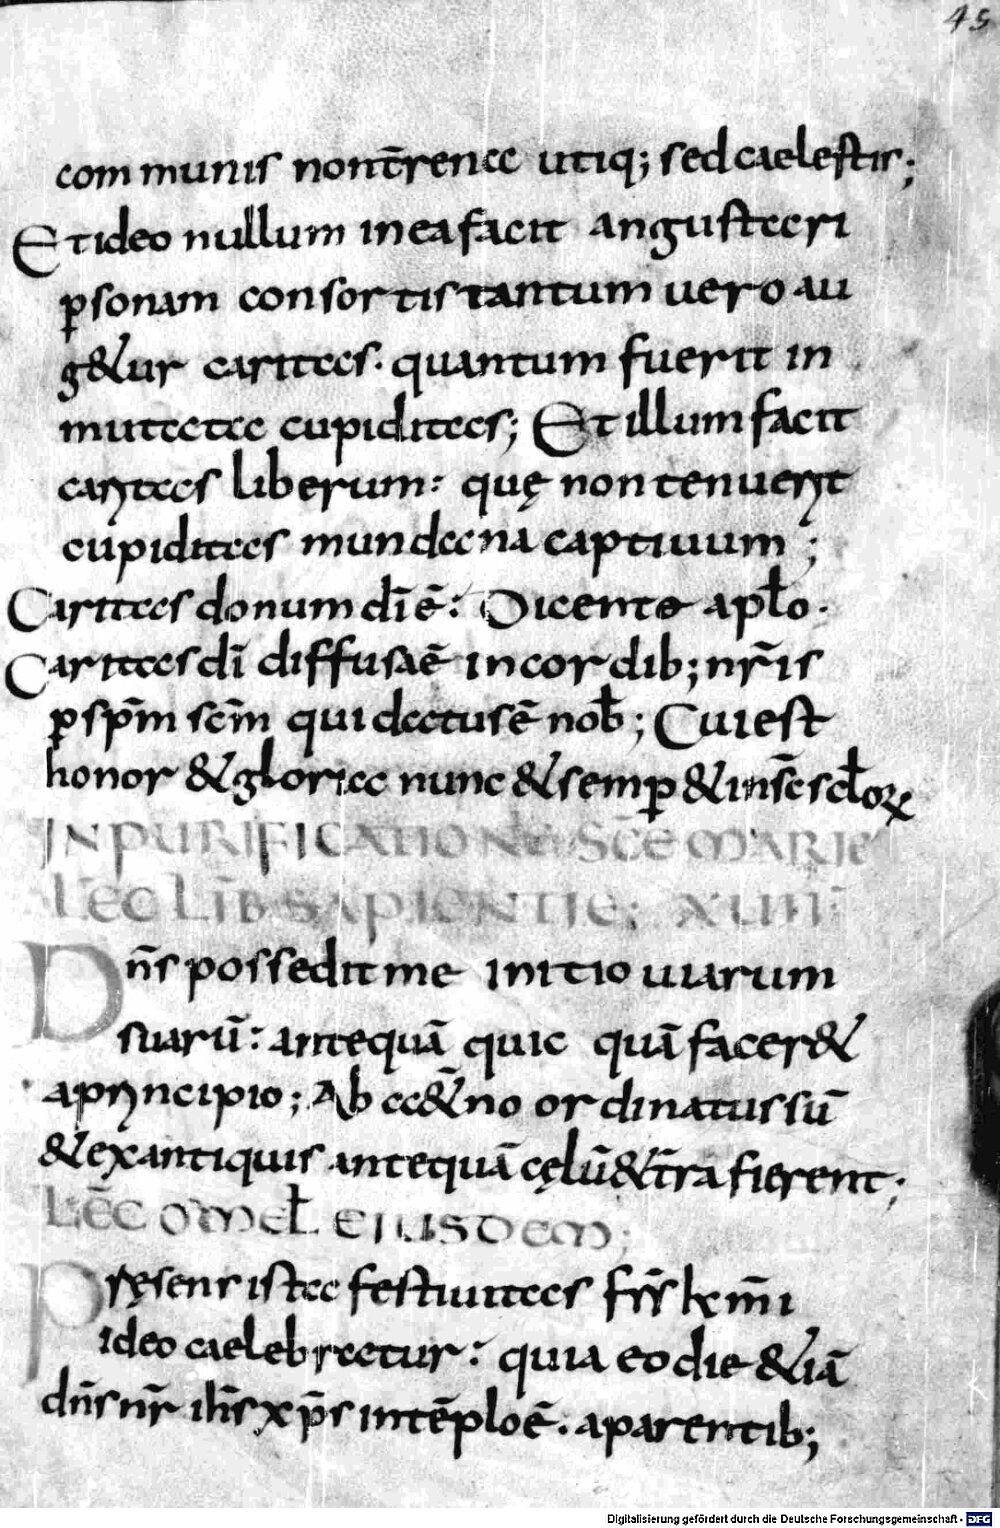 45
communis non t̄rena utiq; sed caelestis;
Et ideo nullum in ea facit angustari
ꝑsonam consortis tantum uero au
g&ur caritas. quantum fuerit in
mutata cupiditas; Et illum facit
caritas liberum: quę non tenuerit
cupiditas mundana captiuum;
Caritas donum dī ē: Dicente apło.
Caritas dī diffusa ē in cordib; nr̄is
ꝑ sp̄m sc̄m qui datus ē nob̄; Cui est
honor & gloria nunc & semꝑ & in sc̄scłoꝝ
IN PURIFICATIONE SC̄E MARIE
LEC LIB̄ SAPIENTIE; XUIII:
Dn̄s possedit me initio uiarum
suarū: antequā quic quā facer&
a principio; Ab a&̄no ordinatus sū
& ex antiquis antequā cęlū & t̄ra fierent;
LEC̄ OMEL̄ EIUSDEM;
Pręsens ista festiuitas fr̄s k̄mi
ideo caelebratur: quia eo die & iā
dn̄s nr̄ ih̄s xp̄s in tēplo ē. aparentib;
Digitalisierung gefördert durch die Deutsche Forschungsgemeinschaft - DFG